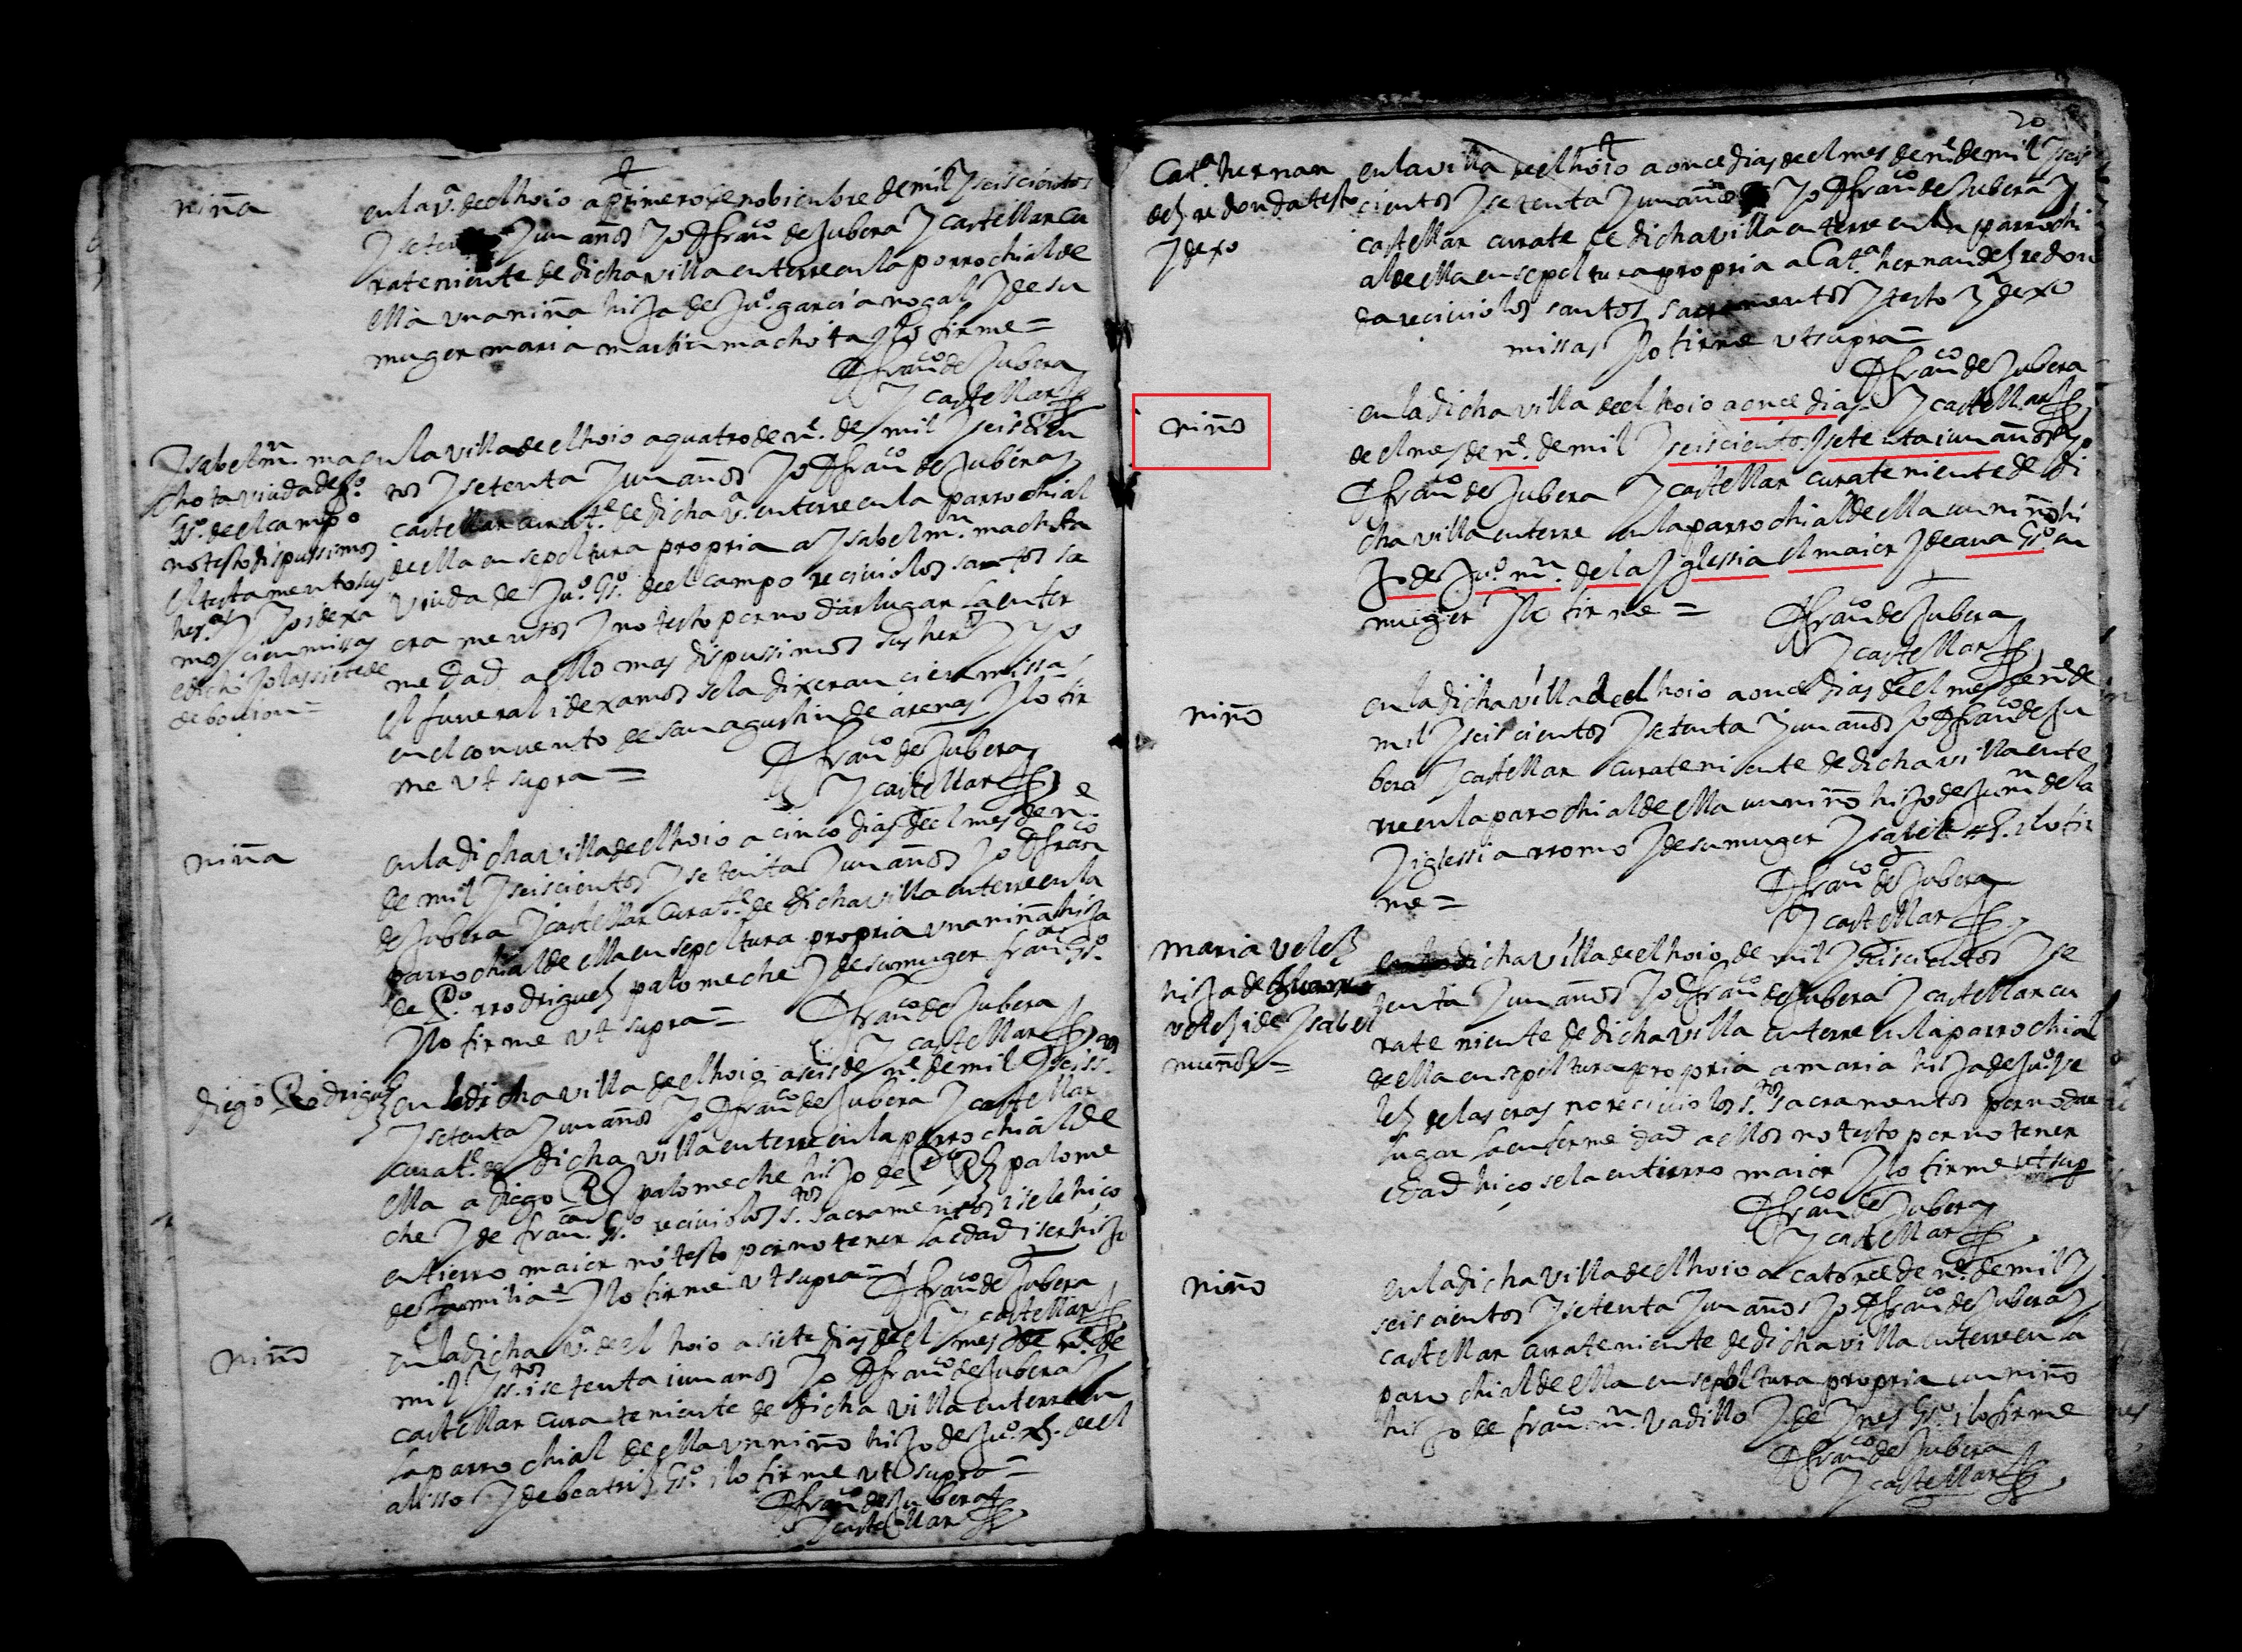 niña
en la vª. de el hoio a primero de nobienbre de mil y seiscientos
y setenta y un años yo D franco de Jubera y castellar cu
rateniente de dicha villa enterre en la parrochial de
ella una niña hija de Juº. garcia nogal y de su
muger maria martin machota y lo firme =
D franco de Jubera
y castellar
Ysabel mn. ma
chota viuda de Juº
Gº. de el campo
no testo dispussimos
el testamento sus
herºs y yo i dexa
mos cien missas
en la villa de el hoio a quatro de nē. de mil y seiscien
tos y setenta y un años yo D franco de Jubera y
castellar curate. de dicha vª. enterre en la parrochial
de ella en sepoltura propria a Ysabel mn. machota
viuda de Juº. Gº. de el campo recivio los santos sa
cramentos y no testo por no dar lugar la enfer
medad a ello mas dispussimos sus herºs y yo
el funeral i dexamos se la dixeran cien missas
en el convento de san agustin de arenas y lo fir
me ut supra =
D franco de Jubera
y castellar
niña
en la dicha villa de el hoio a cinco dias de el mes de nē.
de mil y seiscientos y setenta y un años yo D franco
de Jubera y castellar curate. de dicha villa enterre en la
parrochial de ella en sepoltura propria una niña hija
de Pº. rrodriguez palomeche y de su muger franca Gº.
y lo firme ut supra =
D franco de Jubera
y castellar
diego Rodriguez
en la dicha villa de el hoio a seis de nē. de mil y seiss.tos
y setenta y un años yo D franco de Jubera y castellar
curate. de dicha villa enterre en la parrochial de
ella a diego Rz palomeche hijo de Pº Rz palome
che y de franca. Gº. recivio los s.tos sacramentos i se le hiço
entierro maior no testo por no tener la edad i ser hijo
de familia y lo firme ut supra =
D franco de Jubera
y castellar
niño
en la dicha vª. de el hoio a siete dias de el mes de nē. de
mil y ss.tos i setenta i un anos yo D franco de Jubera y
castellar cura teniente de dicha villa enterre en
la parrochial de ella un niño hijo de Juº. Rz. de el
alisso y de beatriz Gº. i lo firme ut supra =
D franco de Jubera
y castellar
20
Catª. hernan
dez redonda testo
y dexo
en la villa de el hoio a once dias de el mes de nē. de mil y seis
cientos y setenta y un años yo D franco de Jubera y
castellar curate de dicha villa enterre en la parrochi
al de ella en sepoltura propria a Catª. hernandez redon
da recivio los santos sacramentos y testo y dexo
missas y lo firme ut supra =
D franco de Jubera
y castellar
niño
en la dicha villa de el hoio a once dias
de el mes de nē. de mil y seiscientos y setenta i un años yo
D franco de Jubera y castellar curateniente de di
cha villa enterre en la parrochial de ella un niño hi
jo de Juº. mn. de la yglessia el maior y de ana Gº. su
muger y lo firme =
D franco de Jubera
y castellar
niño
en la dicha villa de el hoio a once dias de el mes de nē. de
mil y seiscientos y setenta y un años yo D franco de Ju
bera y castellar curateniente de dicha villa ente
rre en la parochial de ella un niño hijo de Ju mn de la
yglessia rromo y de su muger Ysabel i lo fir
me =
D franco de Jubera
y castellar
maria velez
hija de
velez i de Ysabel
muñoz =
dicha villa de el hoio de mil y seiscientos y se
tenta y un años yo D franco de Jubera y castellar cu
rate niente de dicha villa enterre en la parrochial
de ella en sepoltura propria a maria hija de Juº. ve
lez de las eras no recivio los s.tos sacramentos por no dar
lugar la enfermedad a ellos no testo por no tener
edad hiço se la entierro maior y lo firme ut sup
D franco de Jubera
y castellar
niño
en la dicha villa de el hoio a catorce de nē. de mil y
seiscientos y setenta y un años yo D franco de Jubera y
castellar curateniente de dicha villa enterre en la
parrochial de ella en sepoltura propria un niño
hijo de franco mn. vadillo y de Ynes Gº. i lo firme
D franco de Jubera
y castellar